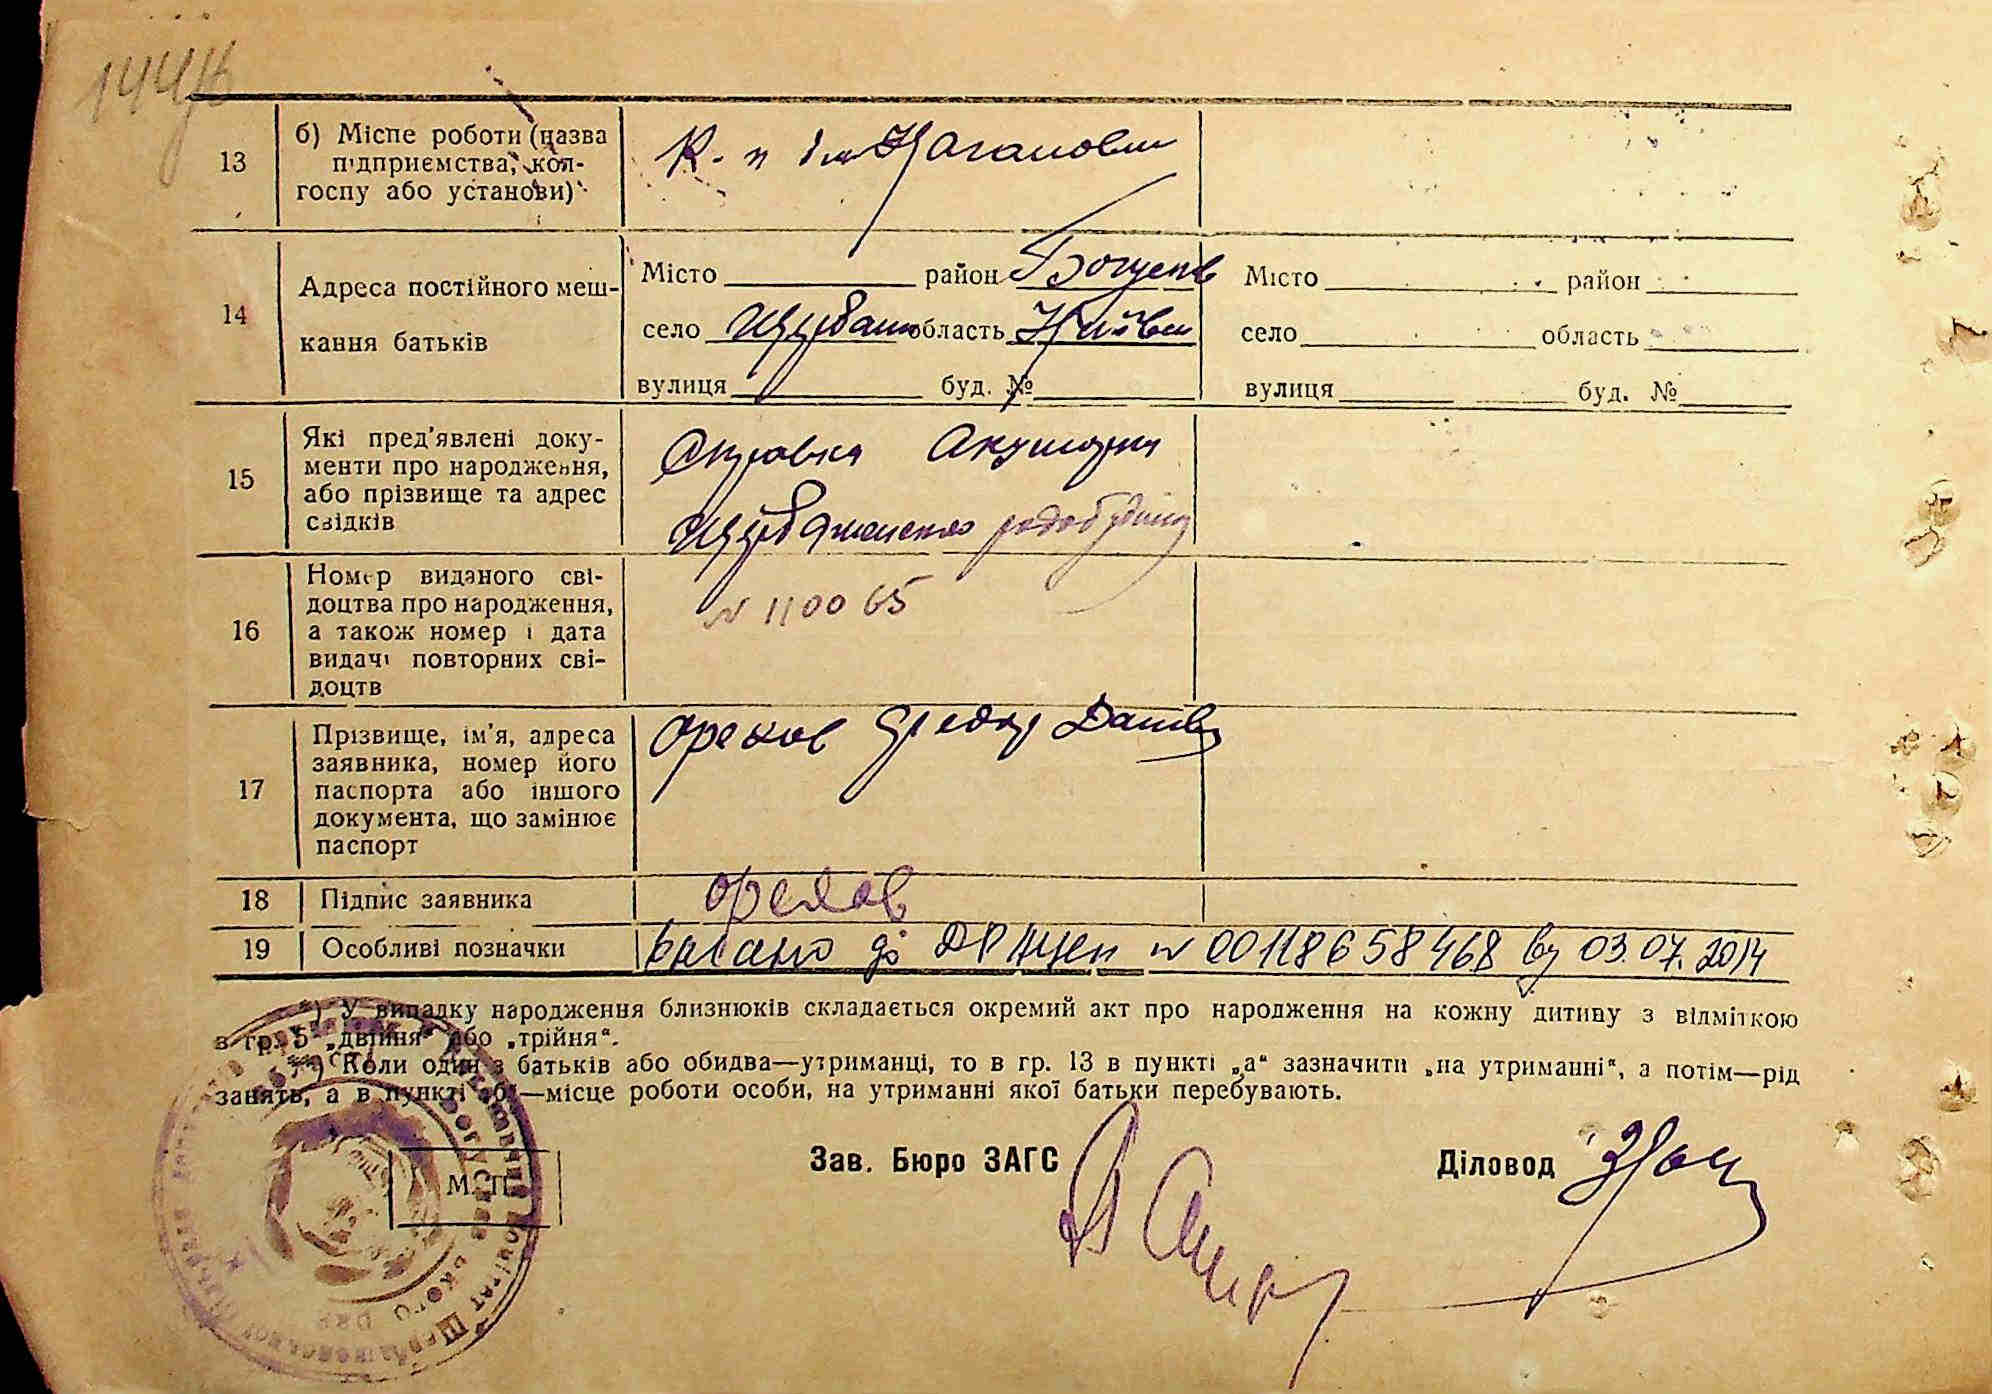 144
13
б) Місце роботи (назва
підприємства, кол-
госпу або установи)
К-п ім Кагановича
14
Адреса постійного меш-
кання батьків
Місто район Богуслв
село область Київськ
вулиця буд. №
Місто район
село область
вулиця буд. №
15
Які пред'явлені доку-
менти про народження,
або прізвище та адрес
свідків
Справка Акушорки
родобудинку
16
Номер виданого сві-
доцтва про народження,
а також номер і дата
видачі повторних сві-
доцтв
N 110065
17
Прізвище, ім'я, адреса
заявника, номер його
паспорта або іншого
документа, що замінює
паспорт
Орехов
18
Підпис заявника
Орехов
19
Особливі позначки
внесено до ДРАЦСГ N 00118658468 від 03.07.2014
*) У випадку народження близнюків складається окремий акт про народження на кожну дитину з відміткою
в гр. 5 „двійня“ або „трійня“.
*) Коли один з батьків або обидва—утриманці, то в гр. 13 в пункті „а“ зазначити „на утриманні“, а потім—рід
занять, а в пункті „б“—місце роботи особи, на утриманні якої батьки перебувають.
М. П.
Зав. Бюро ЗАГС
Діловод